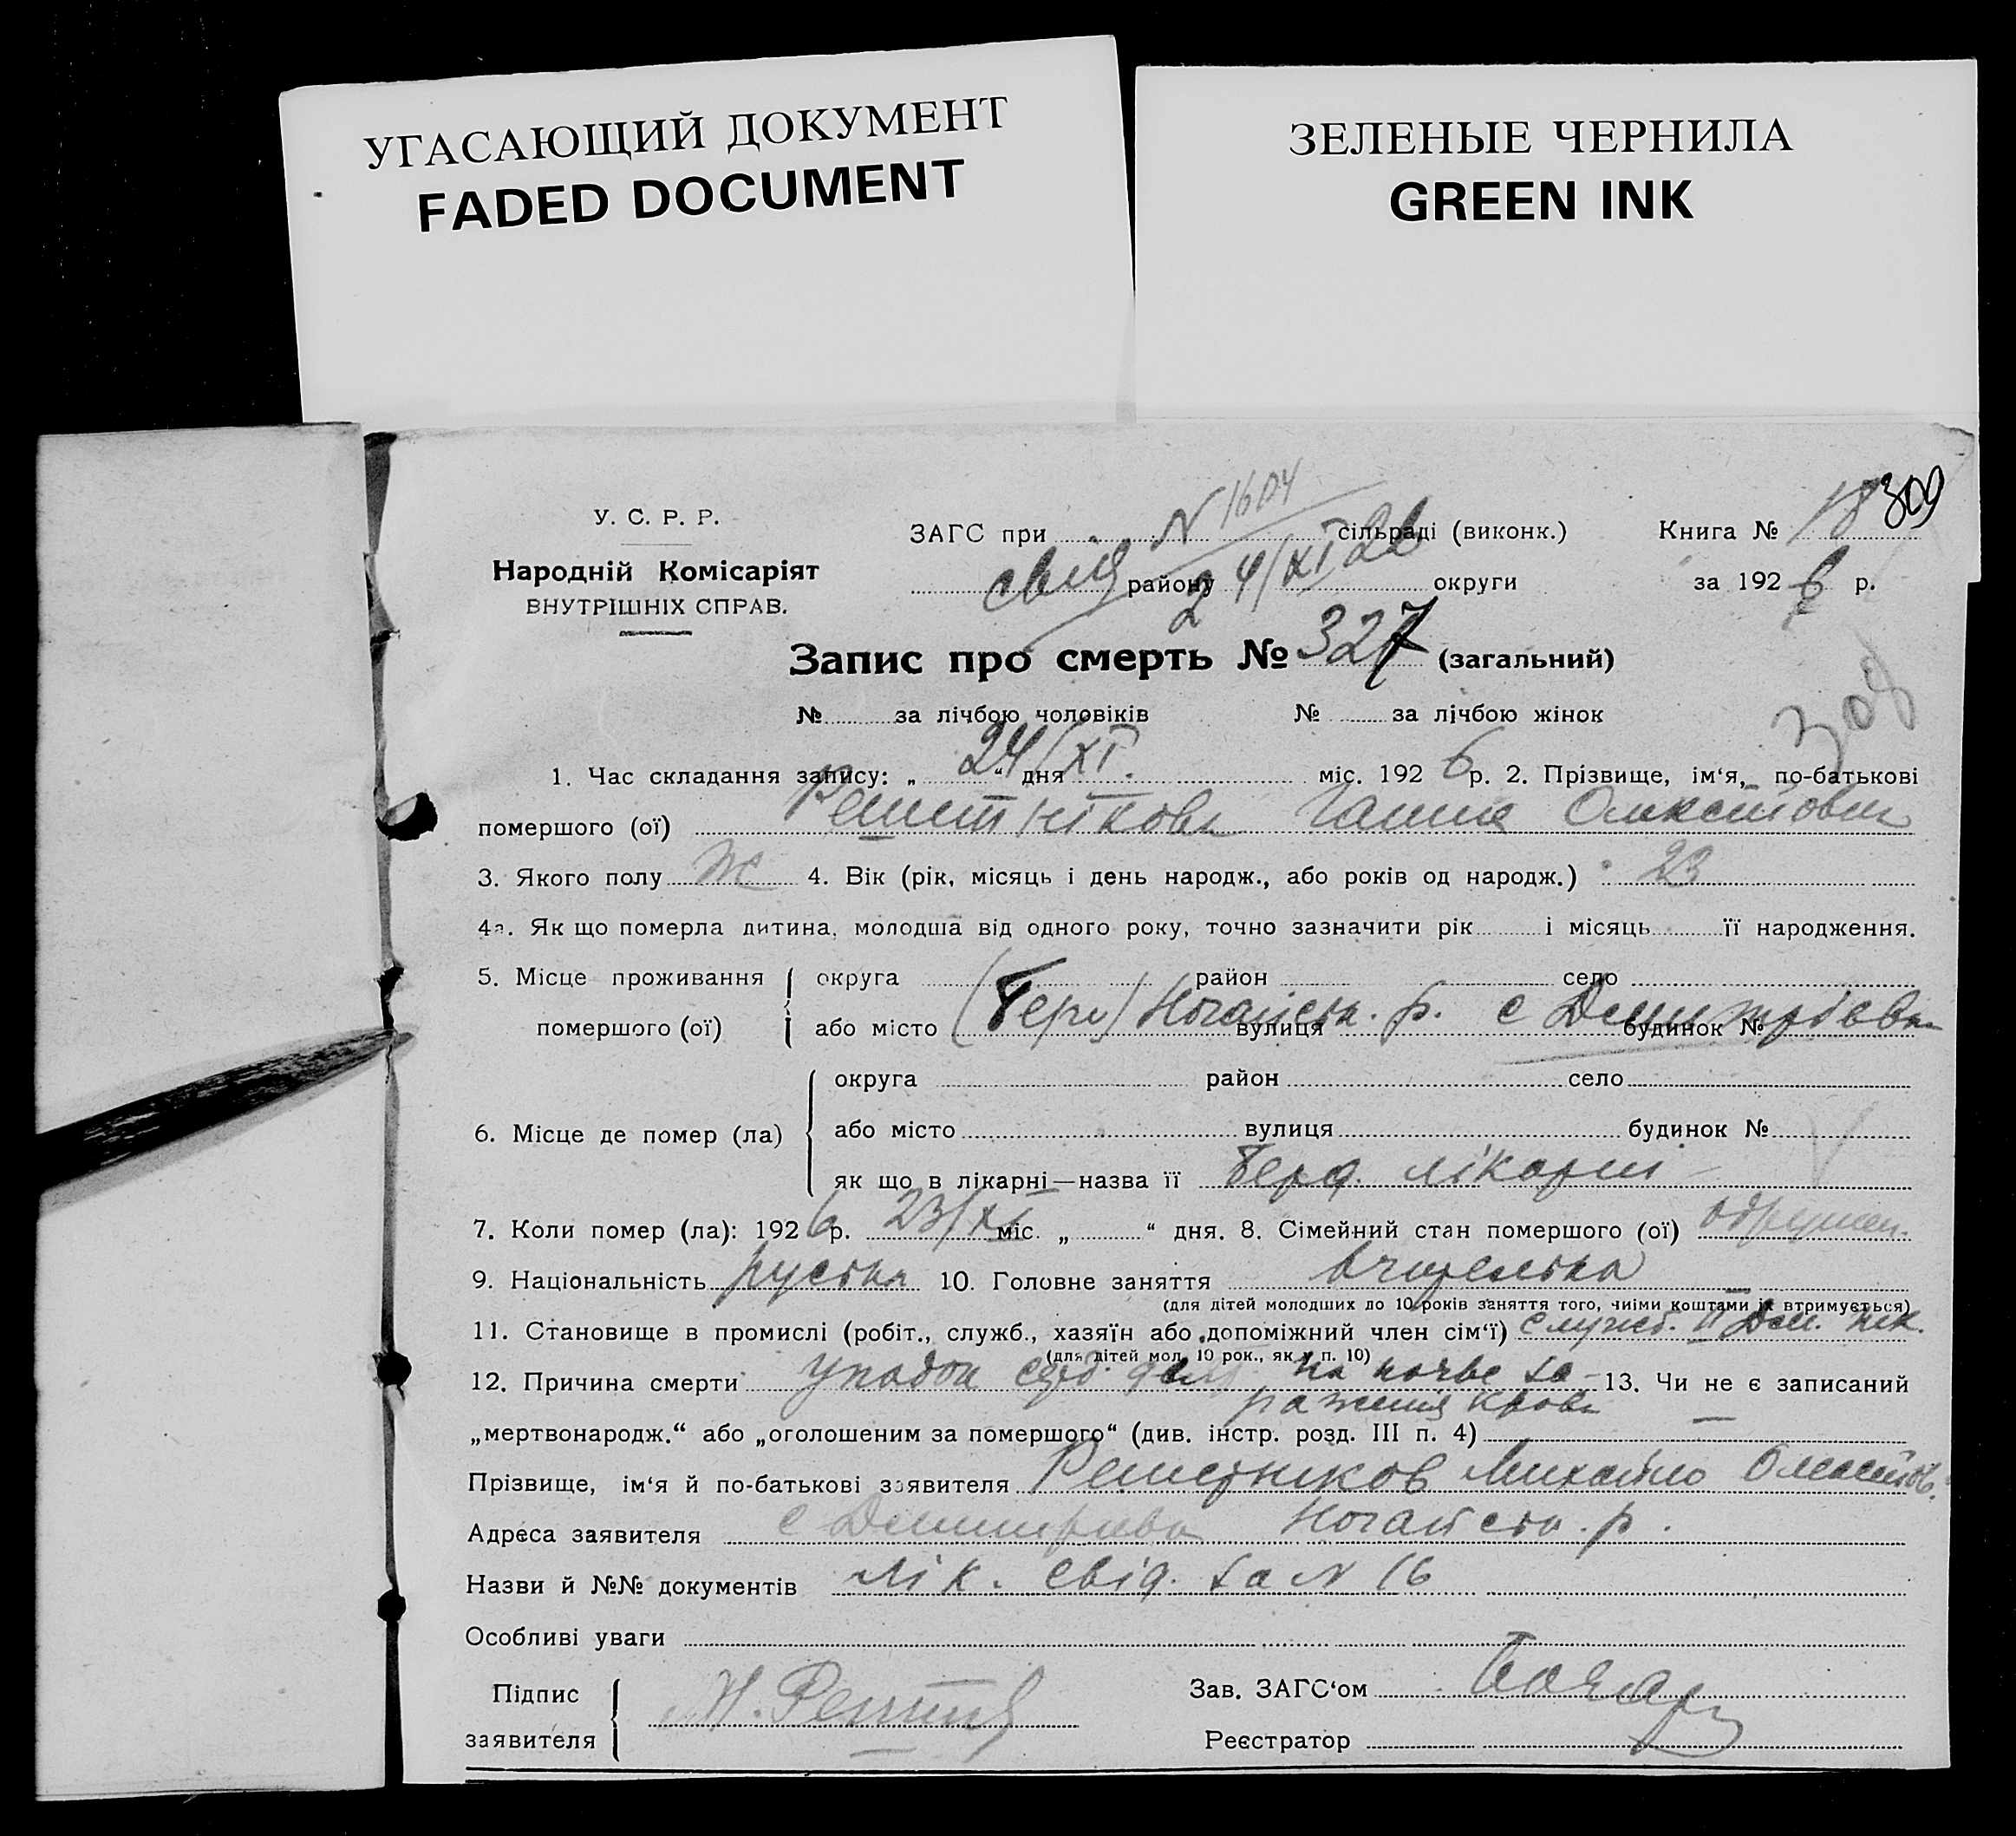 УГАСАЮЩИЙ ДОКУМЕНТ
FADED DOCUMENT
ЗЕЛЕНЫЕ ЧЕРНИЛА
GREEN INK
У. С. Р. Р.
Народній Комісаріят
ВНУТРІШНІХ СПРАВ.
N 1604
ЗАГС при сільраді (виконк.)
свід району 24/XI 26 округи
Книга № 18 309
за 1926 р.
Запис про смерть № 327 (загальний)
№ за лічбою чоловіків № за лічбою жінок
308
1. Час складання запису: „ 24/XI. “ дня міс. 1926 р. 2. Прізвище, ім‘я, по-батькові
помершого (ої) Решітнікова Ганна Олексіївна
3. Якого полу Ж 4. Вік (рік, місяць і день народж., або років од народж.) 23
4а. Як що померла дитина, молодша від одного року, точно зазначити рік і місяць її народження.
5. Місце проживання округа район село
помершого (ої) або місто (Берд) Ногайськ. р. с Димитрієвка вулиця будинок №
округа район село
6. Місце де помер (ла) або місто вулиця будинок №
як що в лікарні—назва її Берд. лікарні
7. Коли помер (ла): 1926 р. 23/XI міс. „ “ дня. 8. Сімейний стан помершого (ої) одружен.
9. Національність руська 10. Головне заняття вчителька
(для дітей молодших до 10 років заняття того, чиїми коштами їх втримується)
11. Становище в промислі (робіт., служб., хазяїн або допоміжний член сім‘ї) служб.
(для дітей мол. 10 рок., як у п. 10)
12. Причина смерти упадок серд. деят на почве за- 13. Чи не є записаний
ражения крови
„мертвонародж.“ або „оголошеним за помершого“ (див. інстр. розд. III п. 4) —
Прізвище, ім‘я й по-батькові заявителя Решетніков Михайло Олексійов.
Адреса заявителя с Димитрівка Ногайськ. р.
Назви й №№ документів Лік. свід. за N 16
Особливі уваги
Підпис
заявителя
Зав. ЗАГС‘ом
Реєстратор